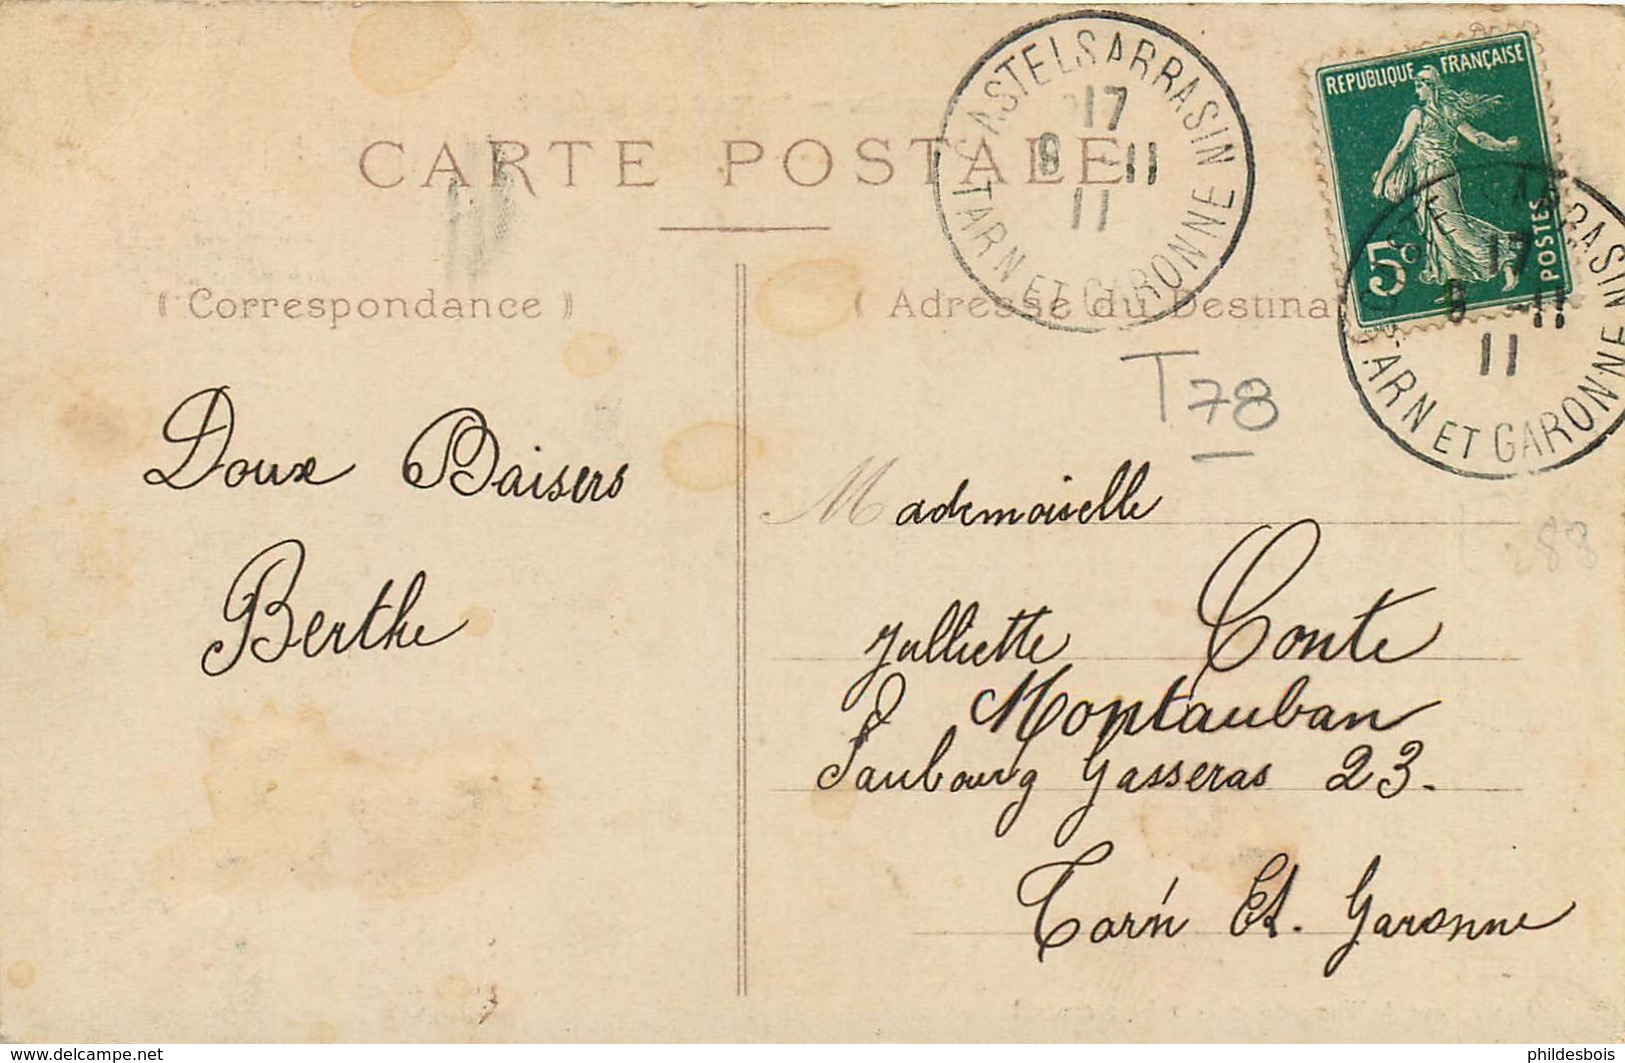 CARTE POSTALE
CASTELSARRASIN
17
9 -11
11
TARN ET GARONNE
REPUBLIQUE FRANÇAISE
5c
POSTES
17
9 -11
11
TARN ET GARONNE
( Correspondance )
( Adresse du Destina
T78
88
Doux Baisers
Berthe
Mademoiselle
Julliette Conte
Montauban
Faubourg Gasseras 23.
Tarn Et. Garonne
www.delcampe.net
phildesbois